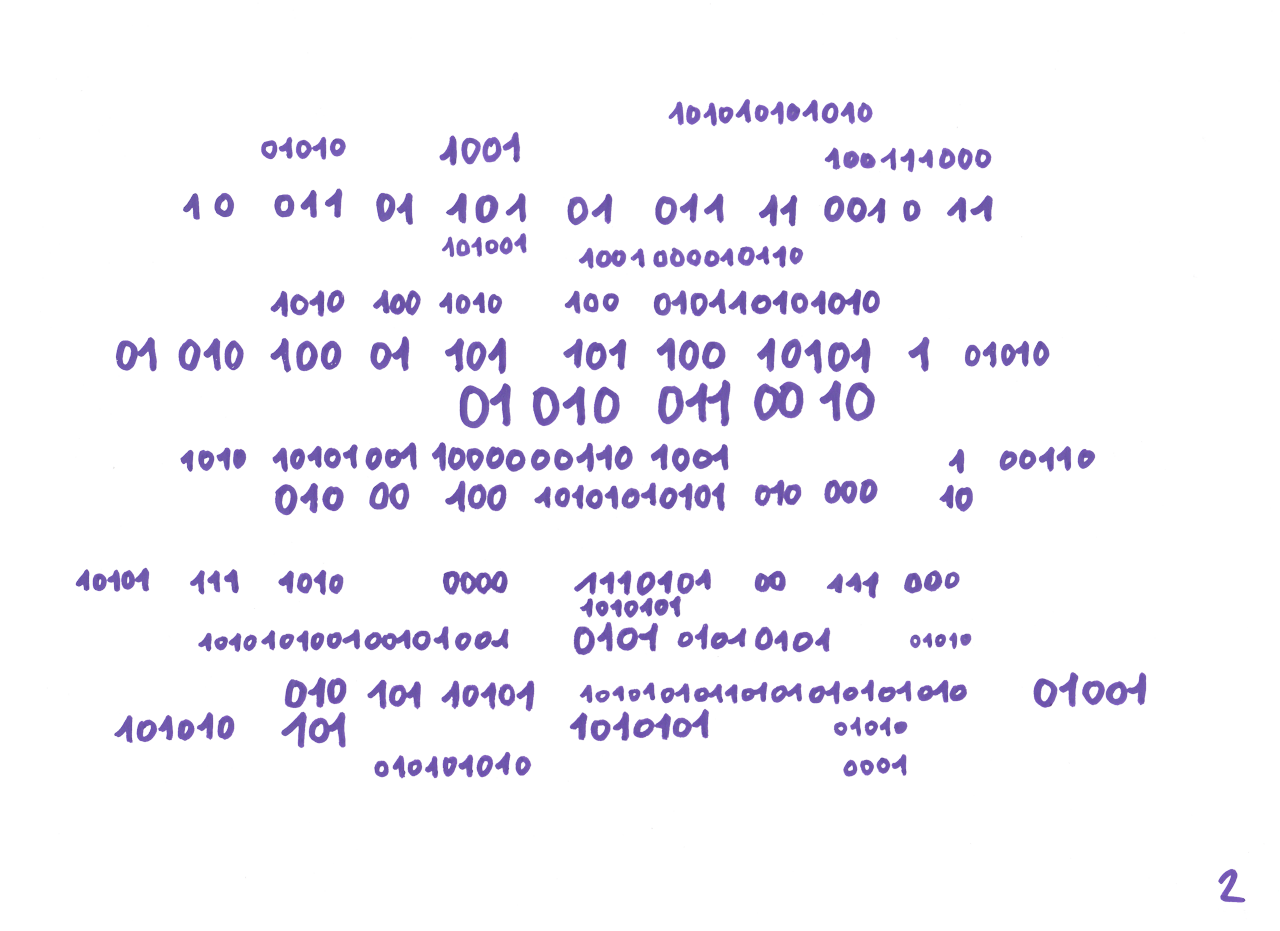 101010101010
01010 1001 100111000
10 011 01 101 01 011 11 001 0 11
101001 1001 000010110
1010 100 1010 100 010110101010
01 010 100 01 101 101 100 10101 1 01010
01 010 011 00 10
1010 10101001 1000000110 1001 1 00110
010 00 100 10101010101 010 000 10
10101 111 1010 0000 1110101 00 111 000
1010101
10101010010010101001 0101 01010101 01010
010 101 10101 1010101011010101010101010 01001
101010 101 1010101 01010
010101010 0001
2